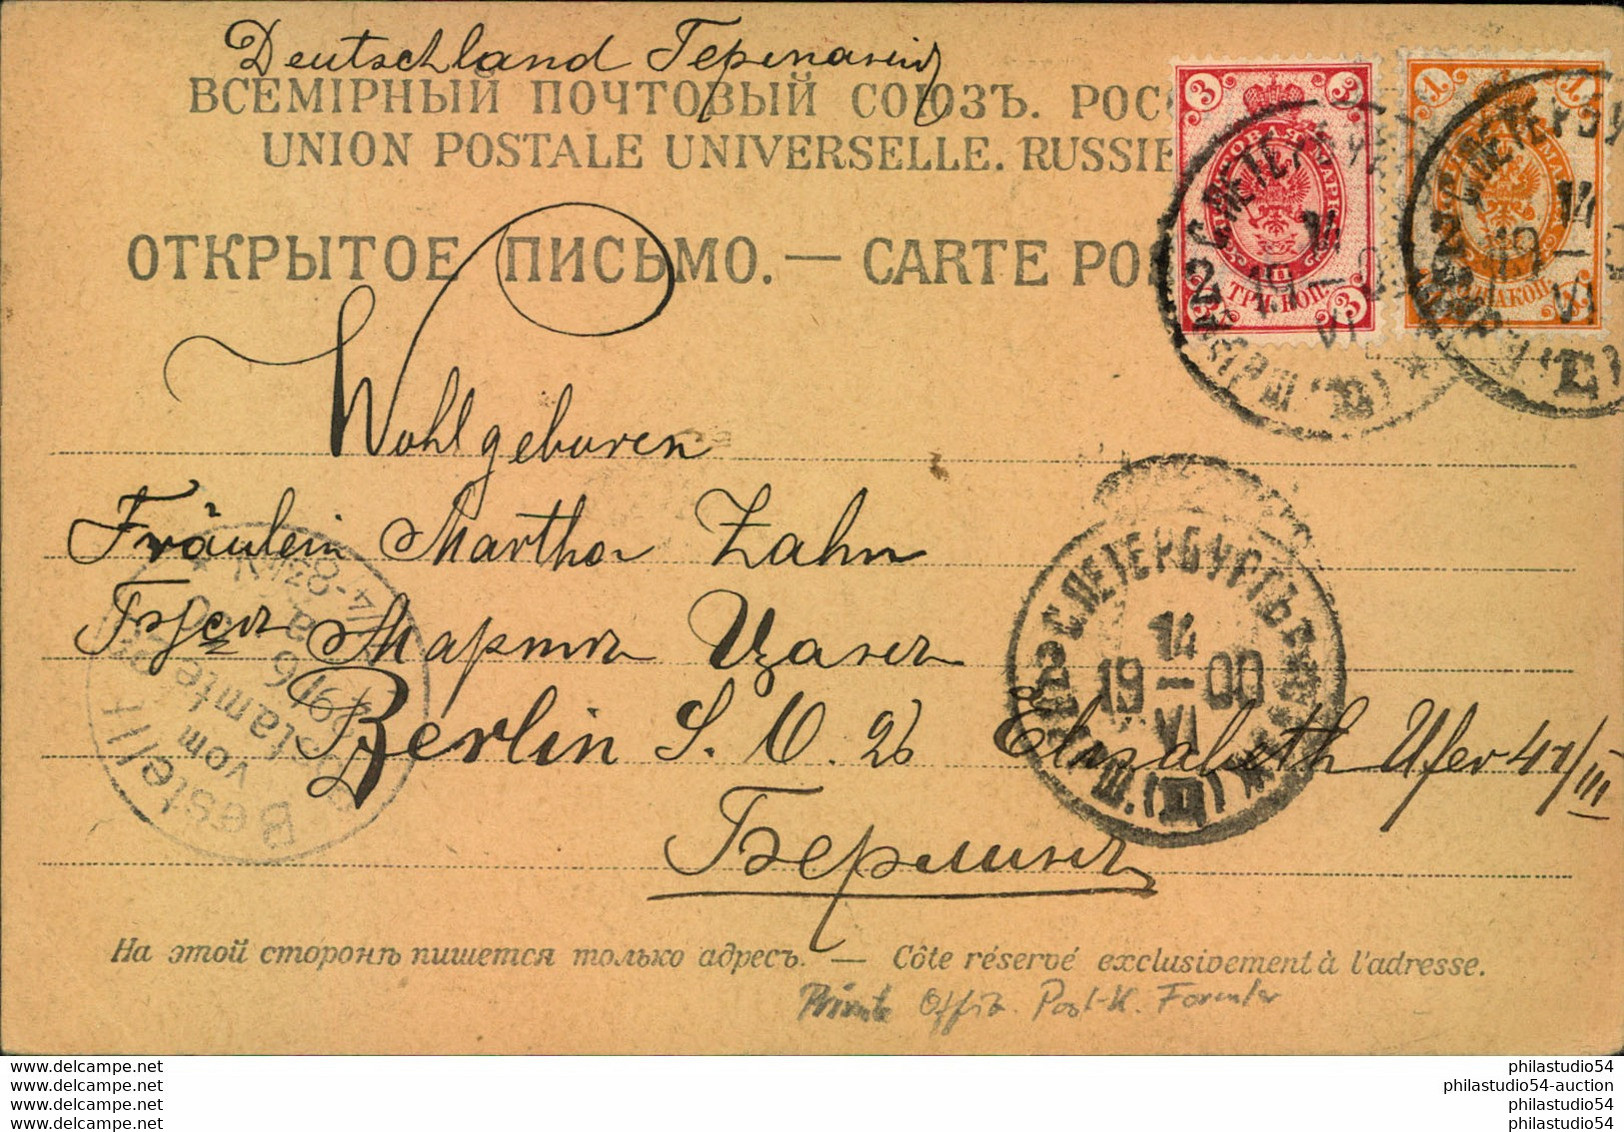 Deutschland Германія
ВСЕМІРНЫЙ ПОЧТОВЫЙ СОЮЗЪ. РОСС
UNION POSTALE UNIVERSELLE. RUSSIE
ОТКРЫТОЕ ПИСЬМО. — CARTE PO
3 3
ТРИ КОП.
3 3
1 1
С.ПЕТЕРБУРГЪ
14
19
VI
Wohlgeboren
Fräulein Martha Zahn
Марта Цанъ
Berlin S. O. 26 Elisabeth Ufer 41/III
Берлинъ
С.ПЕТЕРБУРГЪ
14
19—00
VI
2
Bestellt
vom
Postamte
На этой сторонѣ пишется только адресъ. — Côte réservé exclusivement à l'adresse.
Private Offiz. Post-K. Formular
www.delcampe.net
www.delcampe.net
www.delcampe.net
www.delcampe.net
philastudio54
philastudio54-auction
philastudio54
philastudio54